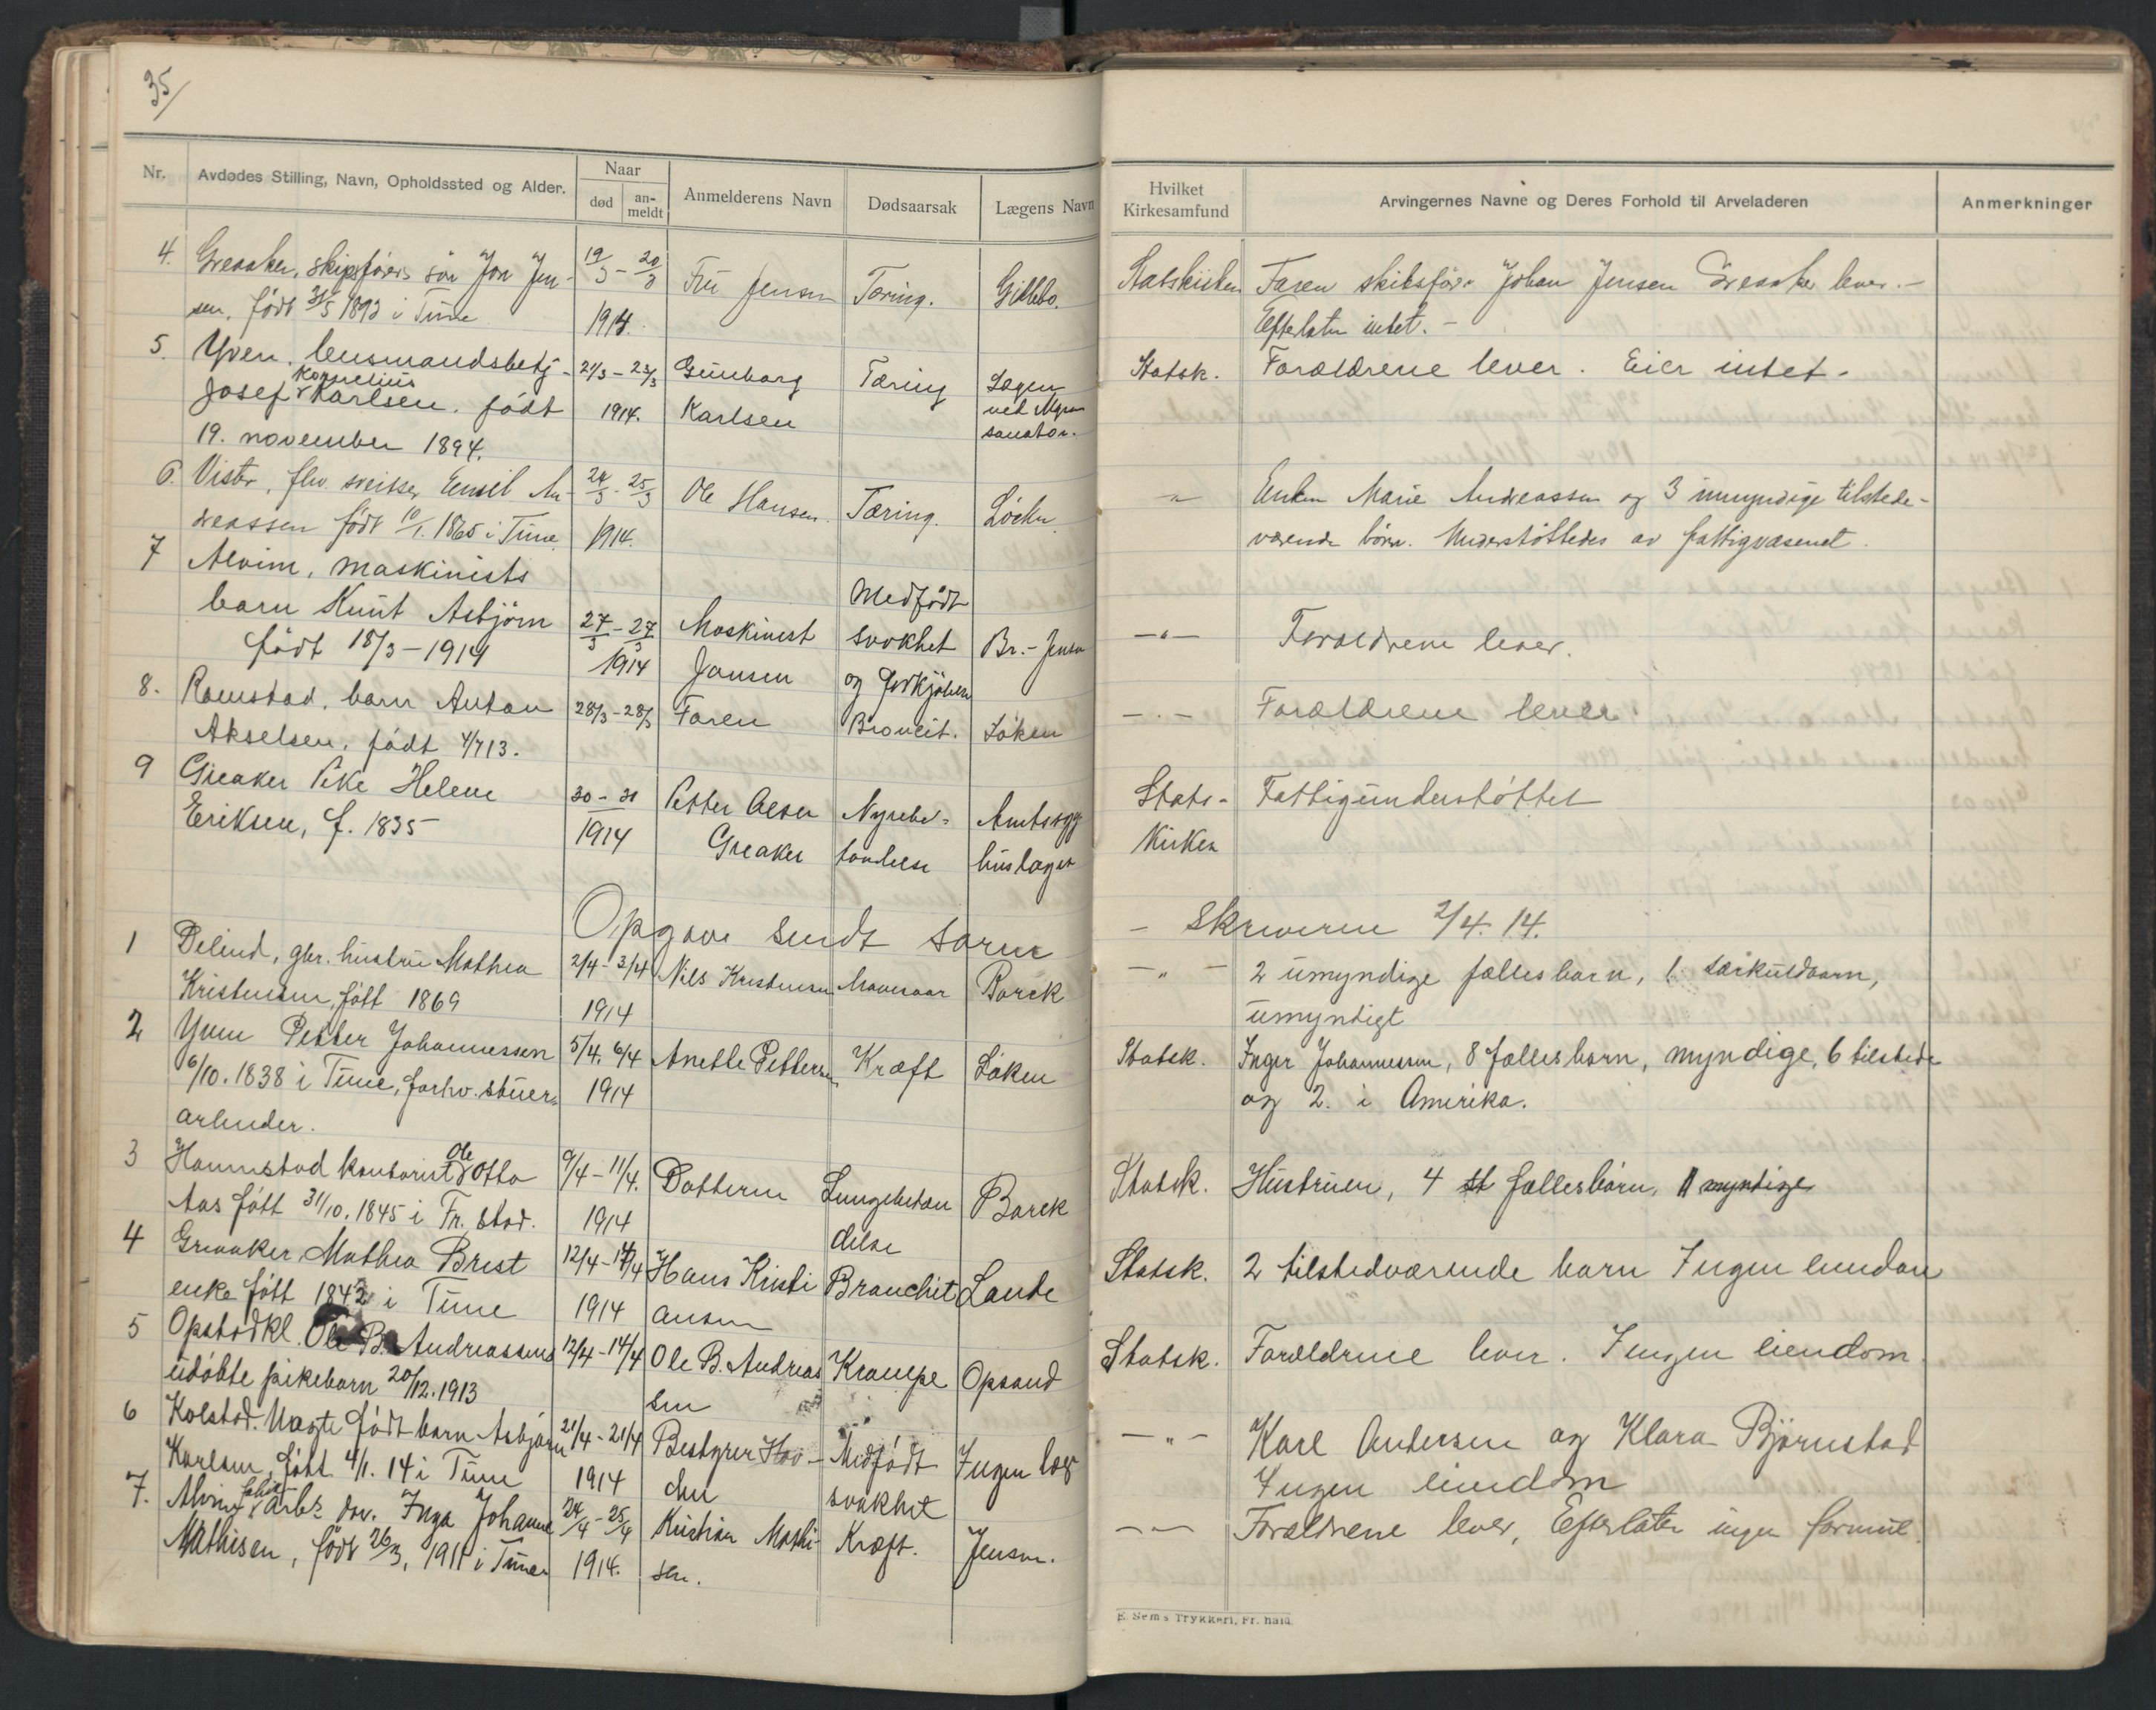 35/
Nr. Avdødes Stilling, Navn, Opholdssted og Alder. Naar død an-meldt Anmelderens Navn Dødsaarsak Lægens Navn
4. Greaaker, skipsførers søn Jon Jen- 19/3 – 20/3 Fru Jensen Tæring. Gillebo.
sen, født 1893 i Tune 1914.
5. Yven, lensmandsbetj- 21/3 – 23/3 Gunborg Tæring Lægen
Kornelius
Josef Karlsen. født 1914. Karlsen ved
19. november 1894. sanator.
6. Vister, fhv. sveitser Emil An- 24/3 - 25/3 Ole Hansen. Tæring. Löchen
dreassen født 10/1. 1865 i Tune. 1914.
7 Alvim, maskinists Medfødt
barn Knut Asbjörn 27/3 – 27/3 Maskinist svakhet Br.- Jensen
født 18/3 – 1914 1914 Jansen og
8. Ramstad, barn Anton 28/3 – 28/3 Faren Bronkit. Löken
Akselsen, født 4/7 13.
9 Greaker Pike Helene 30 – 31 Petter Olsen Nyrebe- Amtssyge
Eriksen, f. 1835 1914 Greaker tændelse huslægen
Opgave sendt soren
1 Delind, gbr. hustru Mathea 2/4 – 3/4 Nils Kristensen Mavesaar Borck
Kristensen, født 1869 1914
2 Yven Petter Johannessen 5/4. 6/4 Anette Pettersen Kræft Løken
6/10. 1838 i Tune, forhv. stuer- 1914
arbeider.
3 Hannestad kontorist Ole Otto 9/4 – 11/4. Datteren Lungebetæn Borck
Aas født 31/10. 1845 i Fr. stad. 1914 delse
4 Greaaker Mathea Brest 12/4 – 14/4 Hans Kristi Bronchit Lande
enke født 1842 i Tune 1914 ansen
5 Opstadkl. Ole B. Andreassens 12/4 – 14/4 Ole B. Andreas Krampe Opsand
udøbte pikebarn 20/12. 1913 sen
6 Kolstad. Uægte født barn Asbjørn 21/4 – 21/4 Bestyrer Hov- Medfødt Ingen læge
Karlsen, født 4/1. 14 i Tune 1914 den svakhet
7. Alvim, arb. dtr. Inga Johanne 24/4 – 25/4 Kristian Mathi- Kræft. Jensen.
Mathisen, født 26/3, 1911 i Tune 1914. sen.
Hvilket Kirkesamfund Arvingernes Navne og Deres Forhold til Arveladeren Anmerkninger
Statskirken Faren skibsfører Johan Jensen Greaaker lever. –
Efterlater intet. –
Statsk. Forældrene lever. Eier intet.
–"– Enken Marie Andreassen og 3 umyndige tilstede-
værende börn. Understöttedes av fattigvæsenet.
–"– Forældrene lever.
–"– Forældrene lever.
Stats- Fattigunderstøttet
kirken
– skriveren 2/4. 14.
–"– 2 umyndige fællesbarn, 1 særkuldbarn,
umyndigt
Statsk. Inger Johannessen, 8 fællesbarn, myndige, 6 tilstede
og 2. i Amerika.
Statsk. Hustruen, 4 fællesbørn, myndige
Statsk. 2 tilstedværende barn Ingen eiendom
Statsk. Forældrene lever. Ingen eiendom.
–"– Karl Andersen og Klara Björnstad
Ingen eiendom
–"– Forældrene lever, Efterlater ingen formue.
E. Sem's Trykkeri, Fr. hald.